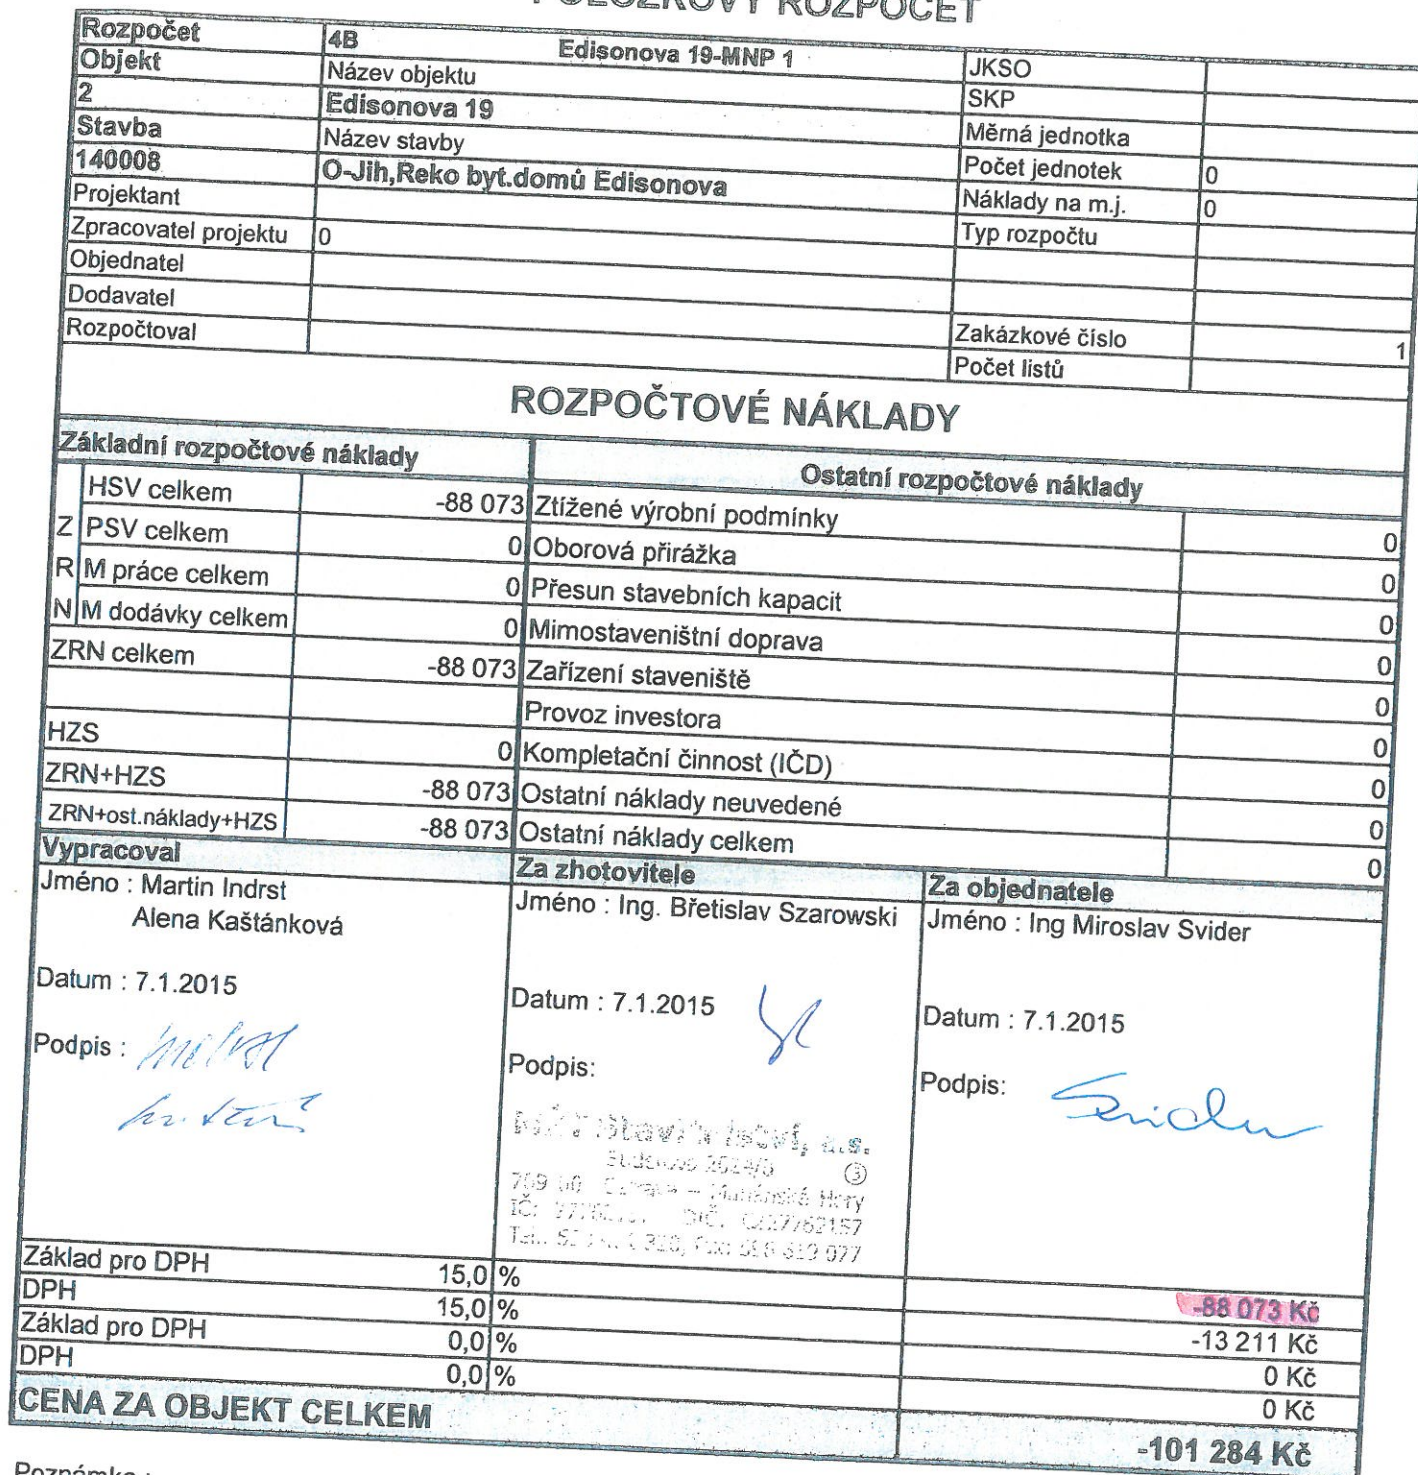 POLOŽKOVÝ ROZPOČET
Rozpočet 4B Edisonova 19-MNP 1 JKSO
Objekt Název objektu SKP
2 Edisonova 19 Měrná jednotka
Stavba Název stavby Počet jednotek 0
140008 O-Jih,Reko byt.domů Edisonova Náklady na m.j. 0
Projektant Typ rozpočtu
Zpracovatel projektu 0
Objednatel
Dodavatel Zakázkové číslo 1
Rozpočtoval Počet listů
ROZPOČTOVÉ NÁKLADY
Základní rozpočtové náklady Ostatní rozpočtové náklady
HSV celkem -88 073 Ztížené výrobní podmínky 0
Z PSV celkem 0 Oborová přirážka 0
R M práce celkem 0 Přesun stavebních kapacit 0
N M dodávky celkem 0 Mimostaveništní doprava 0
ZRN celkem -88 073 Zařízení staveniště 0
Provoz investora 0
HZS 0 Kompletační činnost (IČD) 0
ZRN+HZS -88 073 Ostatní náklady neuvedené 0
ZRN+ost.náklady+HZS -88 073 Ostatní náklady celkem 0
Vypracoval Za zhotovitele Za objednatele
Jméno : Martin Indrst Jméno : Ing. Břetislav Szarowski Jméno : Ing Miroslav Svider
Alena Kaštánková
Datum : 7.1.2015 Datum : 7.1.2015 Datum : 7.1.2015
Podpis : Podpis: Podpis: Svider
a.s.
3
709 Hory
IČ: DIČ:
Základ pro DPH 15,0 % -88 073 Kč
DPH 15,0 % -13 211 Kč
Základ pro DPH 0,0 % 0 Kč
DPH 0,0 % 0 Kč
CENA ZA OBJEKT CELKEM -101 284 Kč
Poznámka :